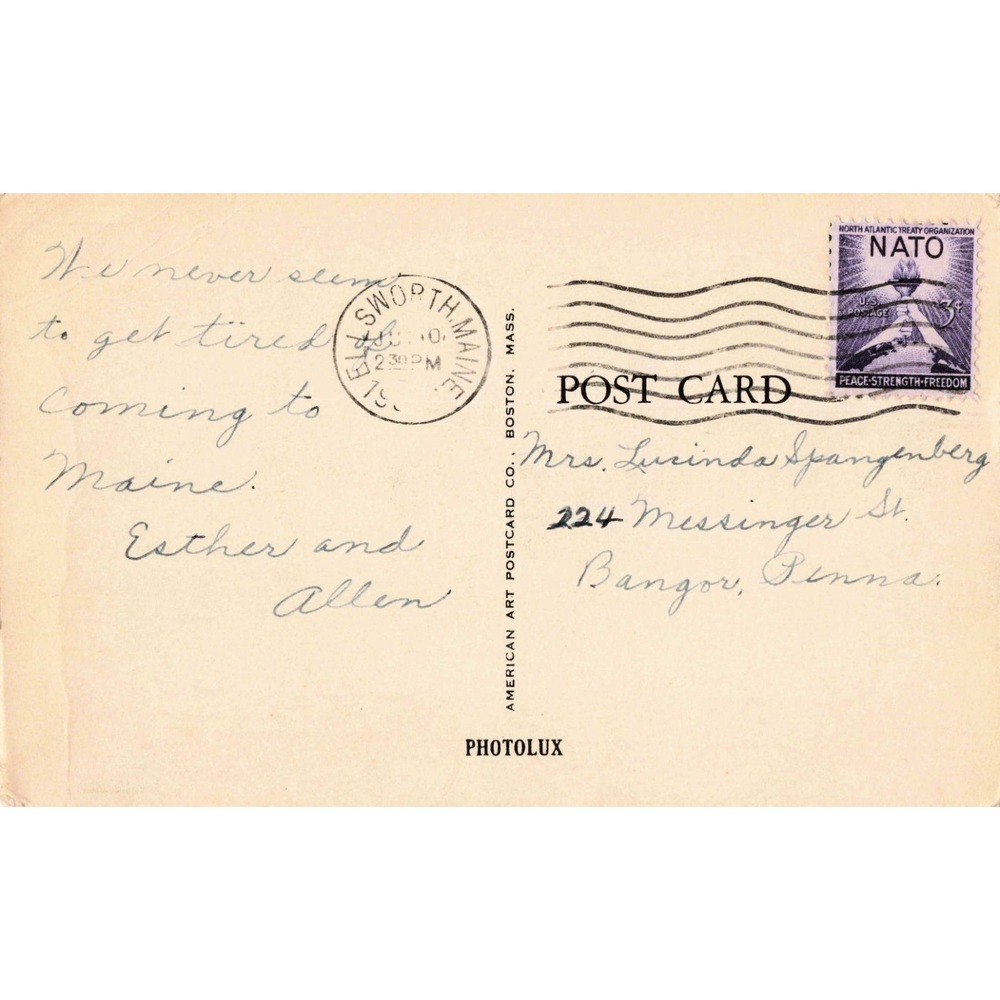 We never seem
to get tired of
coming to
Maine.
Esther and
Allen
ELLSWORTH, MAINE
10
2 30 PM
AMERICAN ART POSTCARD CO., BOSTON, MASS.
NORTH ATLANTIC TREATY ORGANIZATION
NATO
U.S. POSTAGE
3¢
PEACE·STRENGTH·FREEDOM
POST CARD
Mrs. Lucinda Spangenberg
224 Messinger St.
Bangor, Penna.
PHOTOLUX